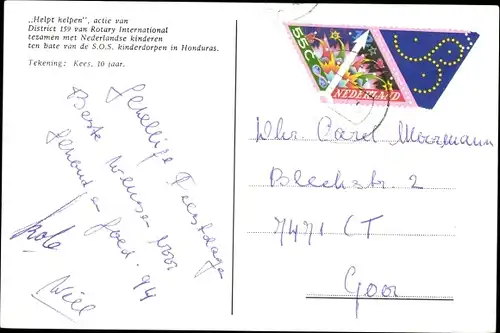 „Helpt helpen", actie van
District 159 van Rotary International
tezamen met Nederlandse kinderen
ten bate van de S.O.S. kinderdorpen in Honduras.
Tekening: Kees, 10 jaar.
Gezellige Feestdagen
Beste Wensen voor
Gezond en Goed. 94
Wiel
55 C
NEDERLAND
Dhr. Carel
Blechstr. 2
7471 CT
Goor